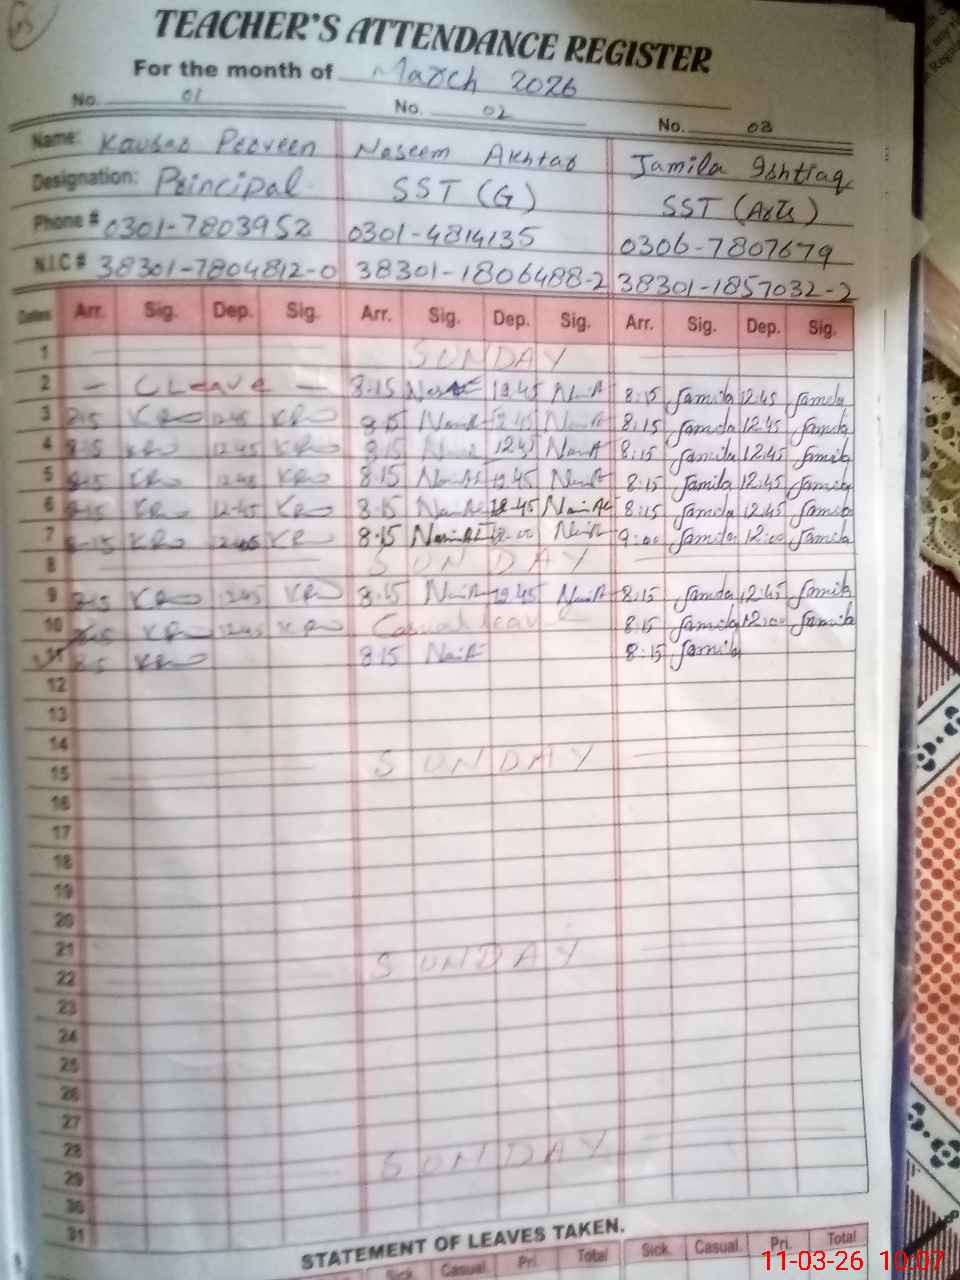 TEACHER'S ATTENDANCE REGISTER
For the month of March 2026
No. 01 No. 02 No. 03
Name: Kausar Perveen Naseem Akhtar Jamila Ishtiaq
Designation: Principal SST (G) SST (Arts)
Phone # 0301-7803952 0301-4814135 0306-7807679
N.I.C # 38301-7804812-0 38301-1806488-2 38301-1857032-2
Dates Arr. Sig. Dep. Sig. Arr. Sig. Dep. Sig. Arr. Sig. Dep. Sig.
1 SUNDAY
2 - C Leave - 8:15 12:45 8:15 Jamila 12:45 Jamila
3 8:15 12:45 8:15 12:45 8:15 Jamila 12:45 Jamila
4 8:15 12:45 8:15 12:45 8:15 Jamila 12:45 Jamila
5 8:15 12:45 8:15 12:45 8:15 Jamila 12:45 Jamila
6 8:15 12:45 8:15 12:45 8:15 Jamila 12:45 Jamila
7 8:15 12:45 8:15 12:00 9:00 Jamila 12:00 Jamila
8 SUNDAY
9 8:15 12:45 8:15 12:45 8:15 Jamila 12:45 Jamila
10 8:15 12:45 Casual leave 8:15 Jamila 12:00 Jamila
11 8:15 8:15 8:15 Jamila
12
13
14
15 SUNDAY
16
17
18
19
20
21
22 SUNDAY
23
24
25
26
27
28
29 SUNDAY
30
31
STATEMENT OF LEAVES TAKEN.
Sick Casual Pri. Total Sick. Casual Pri. Total
11-03-26 10:07